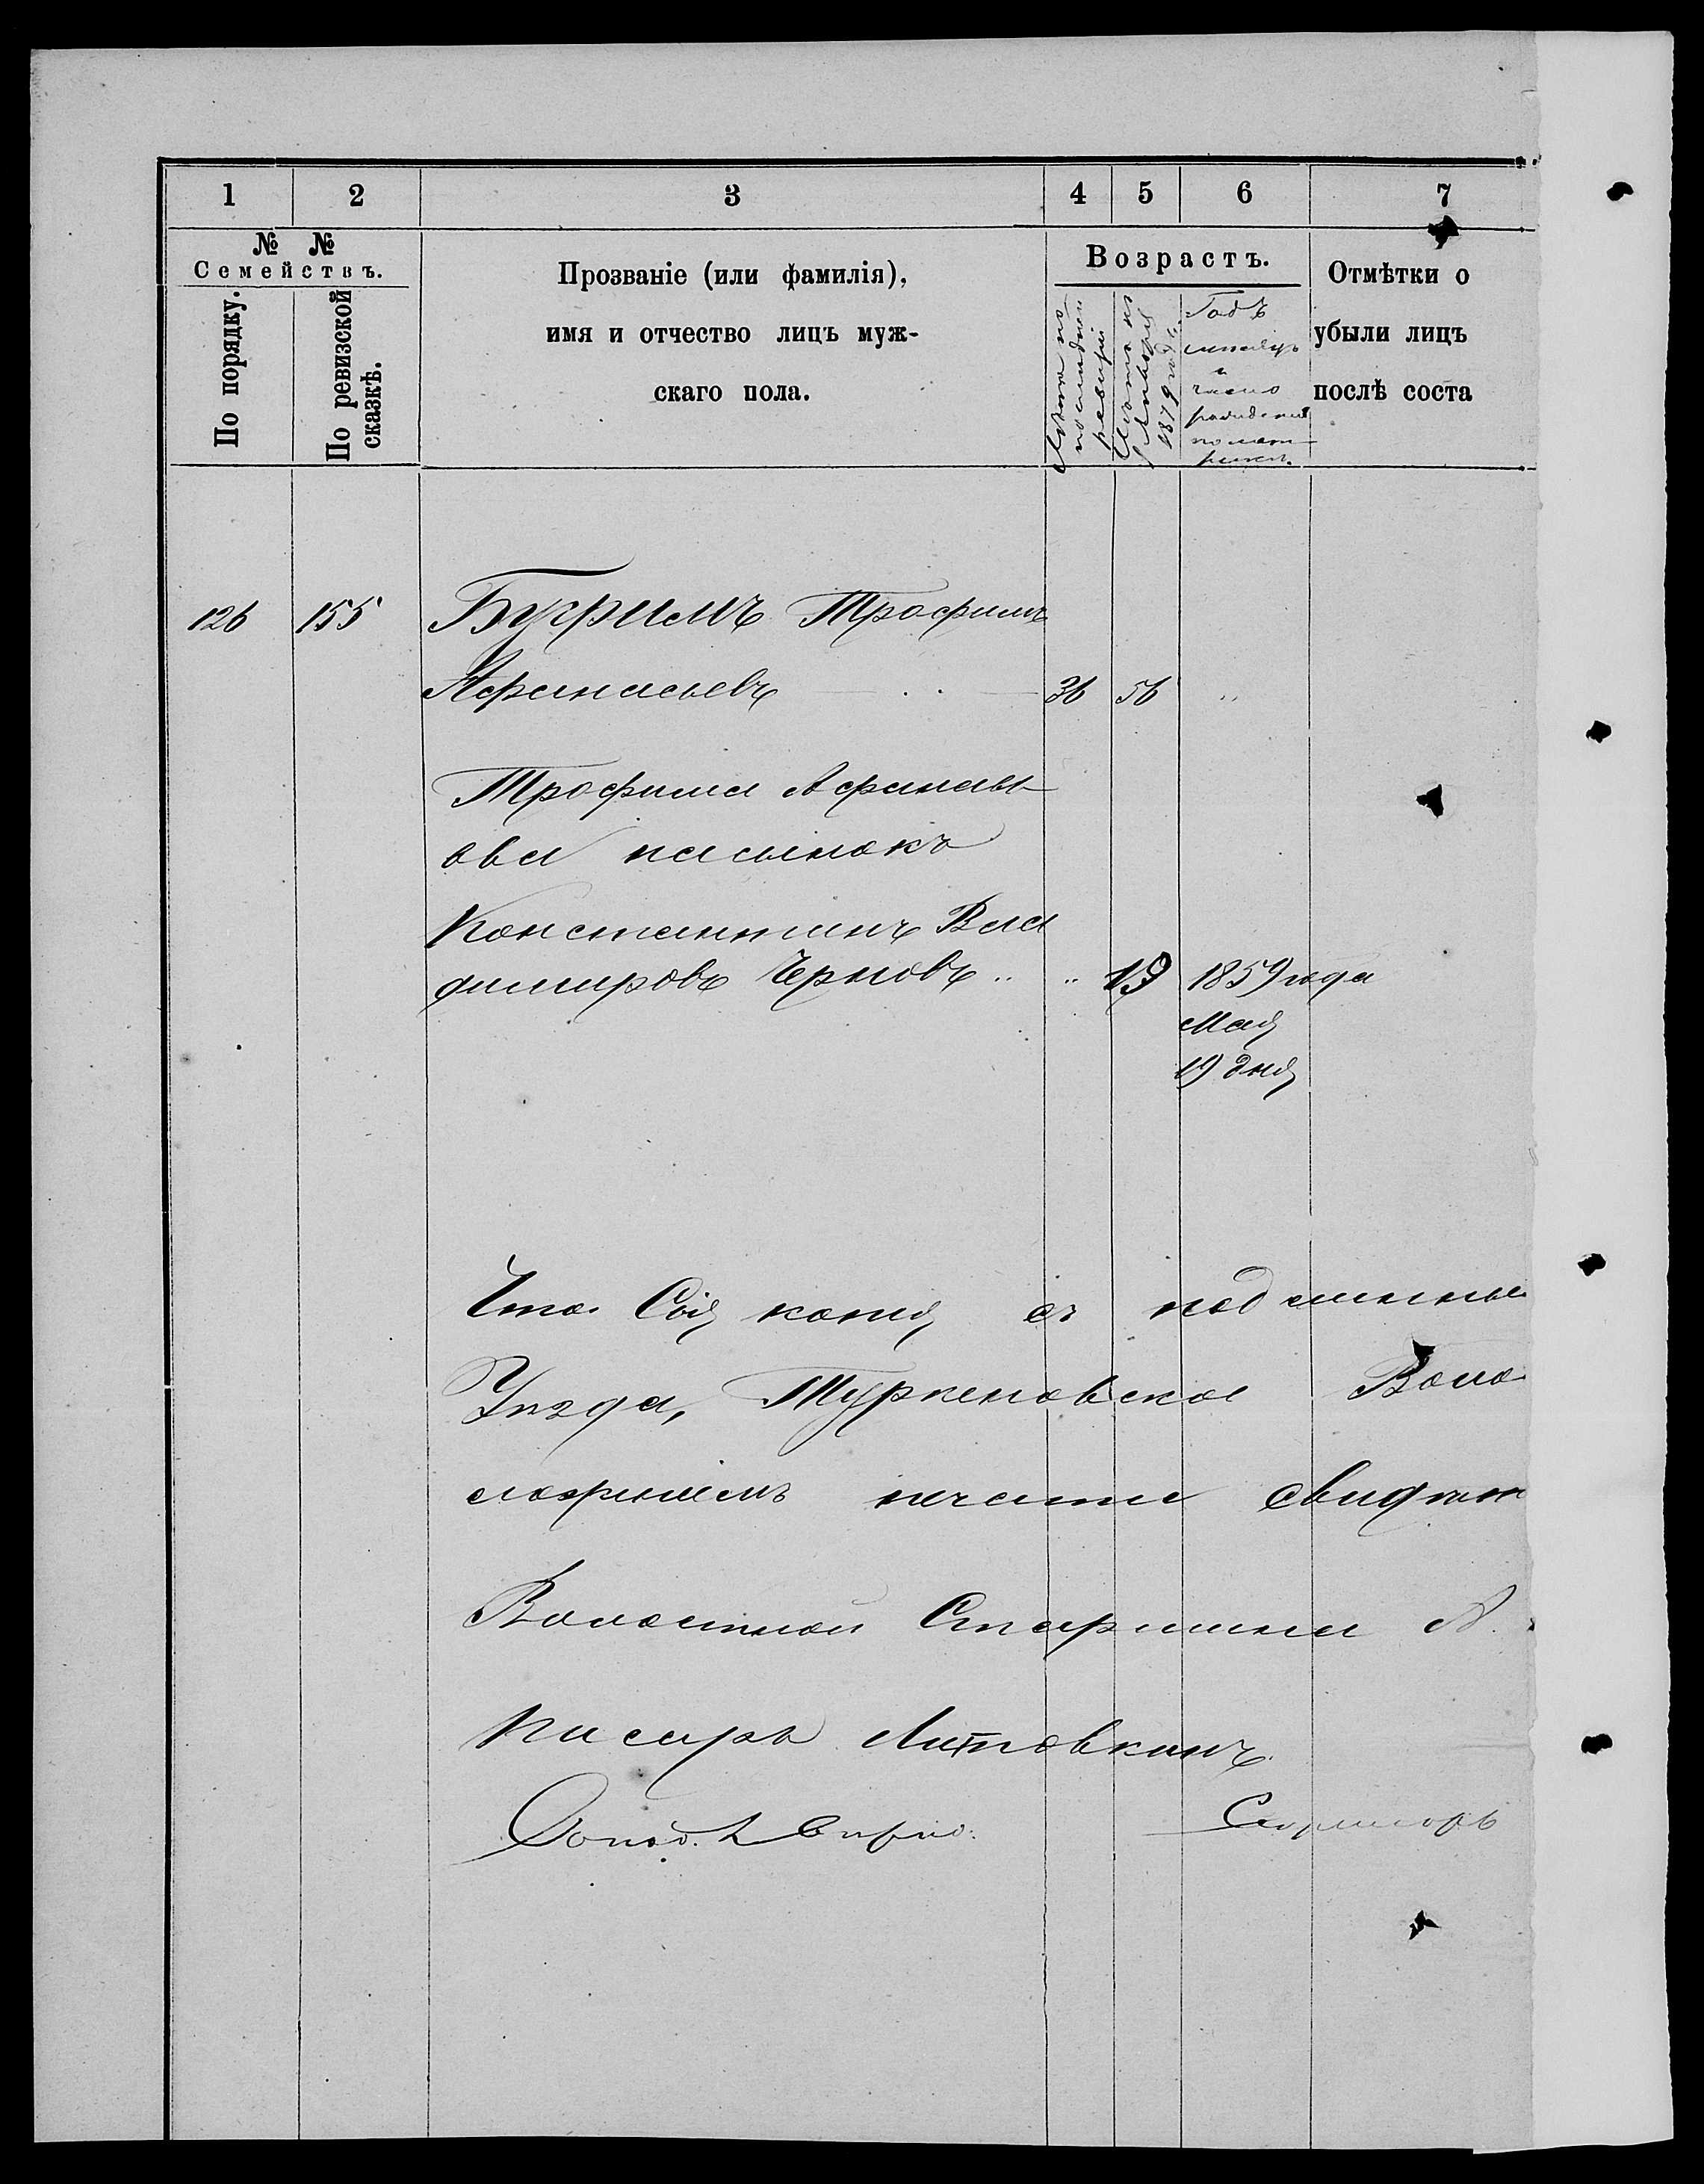 1 2 3 4 5 6 7
№ №
Семействъ.
По порядку.
По ревизской сказкѣ.
Прозваніе (или фамилія),
имя и отчество лицъ муж-
скаго пола.
Возрастъ.
Лѣта по
последней
ревизіи
Лѣта на
1 Января
1879 года.
Годъ
мѣсяцъ
и
число
рожденія
по мет-
рикѣ.
Отмѣтки о
убыли лицъ
послѣ соста
126 155 Бугримъ Трофимъ
Афанасьевъ 36 56 „
Трофима Афанась-
ова пасынокъ
Константинъ Вла
димировъ Черновъ „ „ 19 1859 года
Мая
19 дня
Что Сія копія съ подлинны
Уѣзда, Туркеновское Воло
ложеніемъ печати свидѣт
Волостной Старшина А.
Писарь Литовкинъ